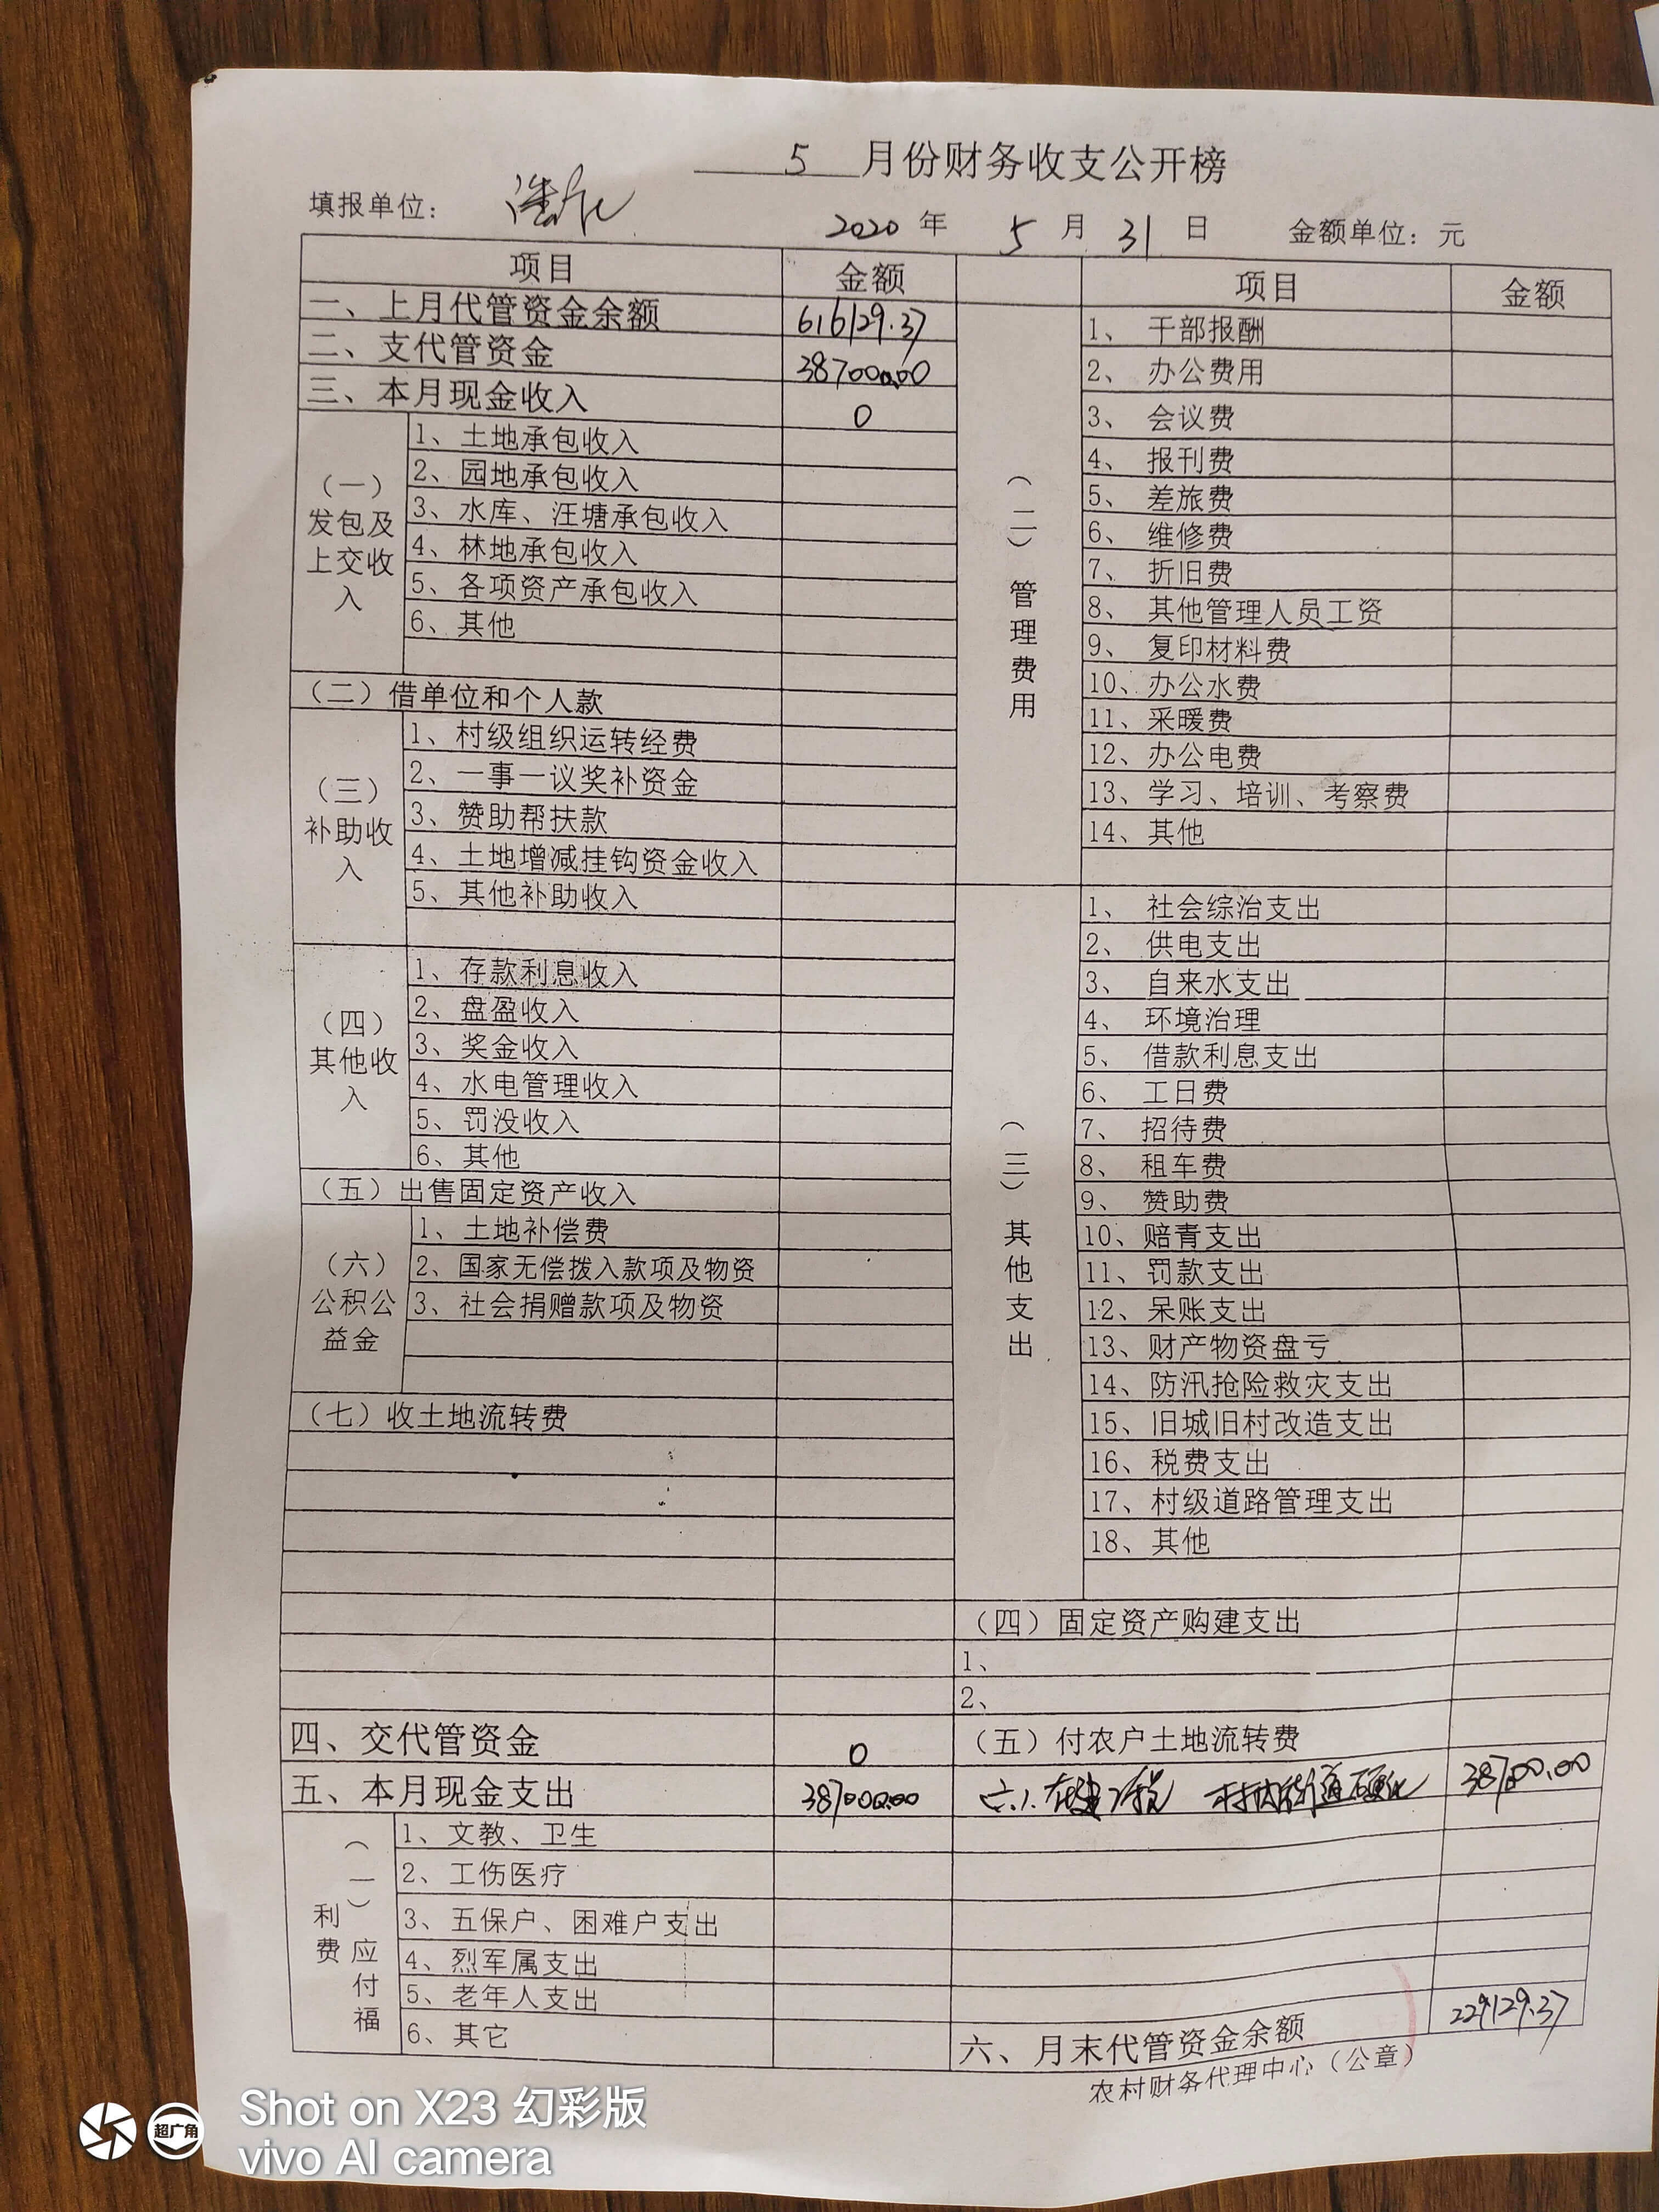 5 月份财务收支公开榜
填报单位：
2020 年 5 月 31 日 金额单位：元
项目 金额
一、上月代管资金余额 616129.37
二、支代管资金 387000.00
三、本月现金收入 0
（一）发包及上交收入
1、土地承包收入
2、园地承包收入
3、水库、汪塘承包收入
4、林地承包收入
5、各项资产承包收入
6、其他
（二）借单位和个人款
（三）补助收入
1、村级组织运转经费
2、一事一议奖补资金
3、赞助帮扶款
4、土地增减挂钩资金收入
5、其他补助收入
（四）其他收入
1、存款利息收入
2、盘盈收入
3、奖金收入
4、水电管理收入
5、罚没收入
6、其他
（五）出售固定资产收入
（六）公积公益金
1、土地补偿费
2、国家无偿拨入款项及物资
3、社会捐赠款项及物资
（七）收土地流转费
四、交代管资金 0
五、本月现金支出 387000.00
（一）应付福利费
1、文教、卫生
2、工伤医疗
3、五保户、困难户支出
4、烈军属支出
5、老年人支出
6、其它
项目 金额
（二）管理费用
1、干部报酬
2、办公费用
3、会议费
4、报刊费
5、差旅费
6、维修费
7、折旧费
8、其他管理人员工资
9、复印材料费
10、办公水费
11、采暖费
12、办公电费
13、学习、培训、考察费
14、其他
（三）其他支出
1、社会综治支出
2、供电支出
3、自来水支出
4、环境治理
5、借款利息支出
6、工日费
7、招待费
8、租车费
9、赞助费
10、赔青支出
11、罚款支出
12、呆账支出
13、财产物资盘亏
14、防汛抢险救灾支出
15、旧城旧村改造支出
16、税费支出
17、村级道路管理支出
18、其他
（四）固定资产购建支出
1、
2、
（五）付农户土地流转费
六、在建工程 村内街道硬化
六、月末代管资金余额 229129.37
农村财务代理中心（公章）
超广角
Shot on X23 幻彩版
vivo AI camera